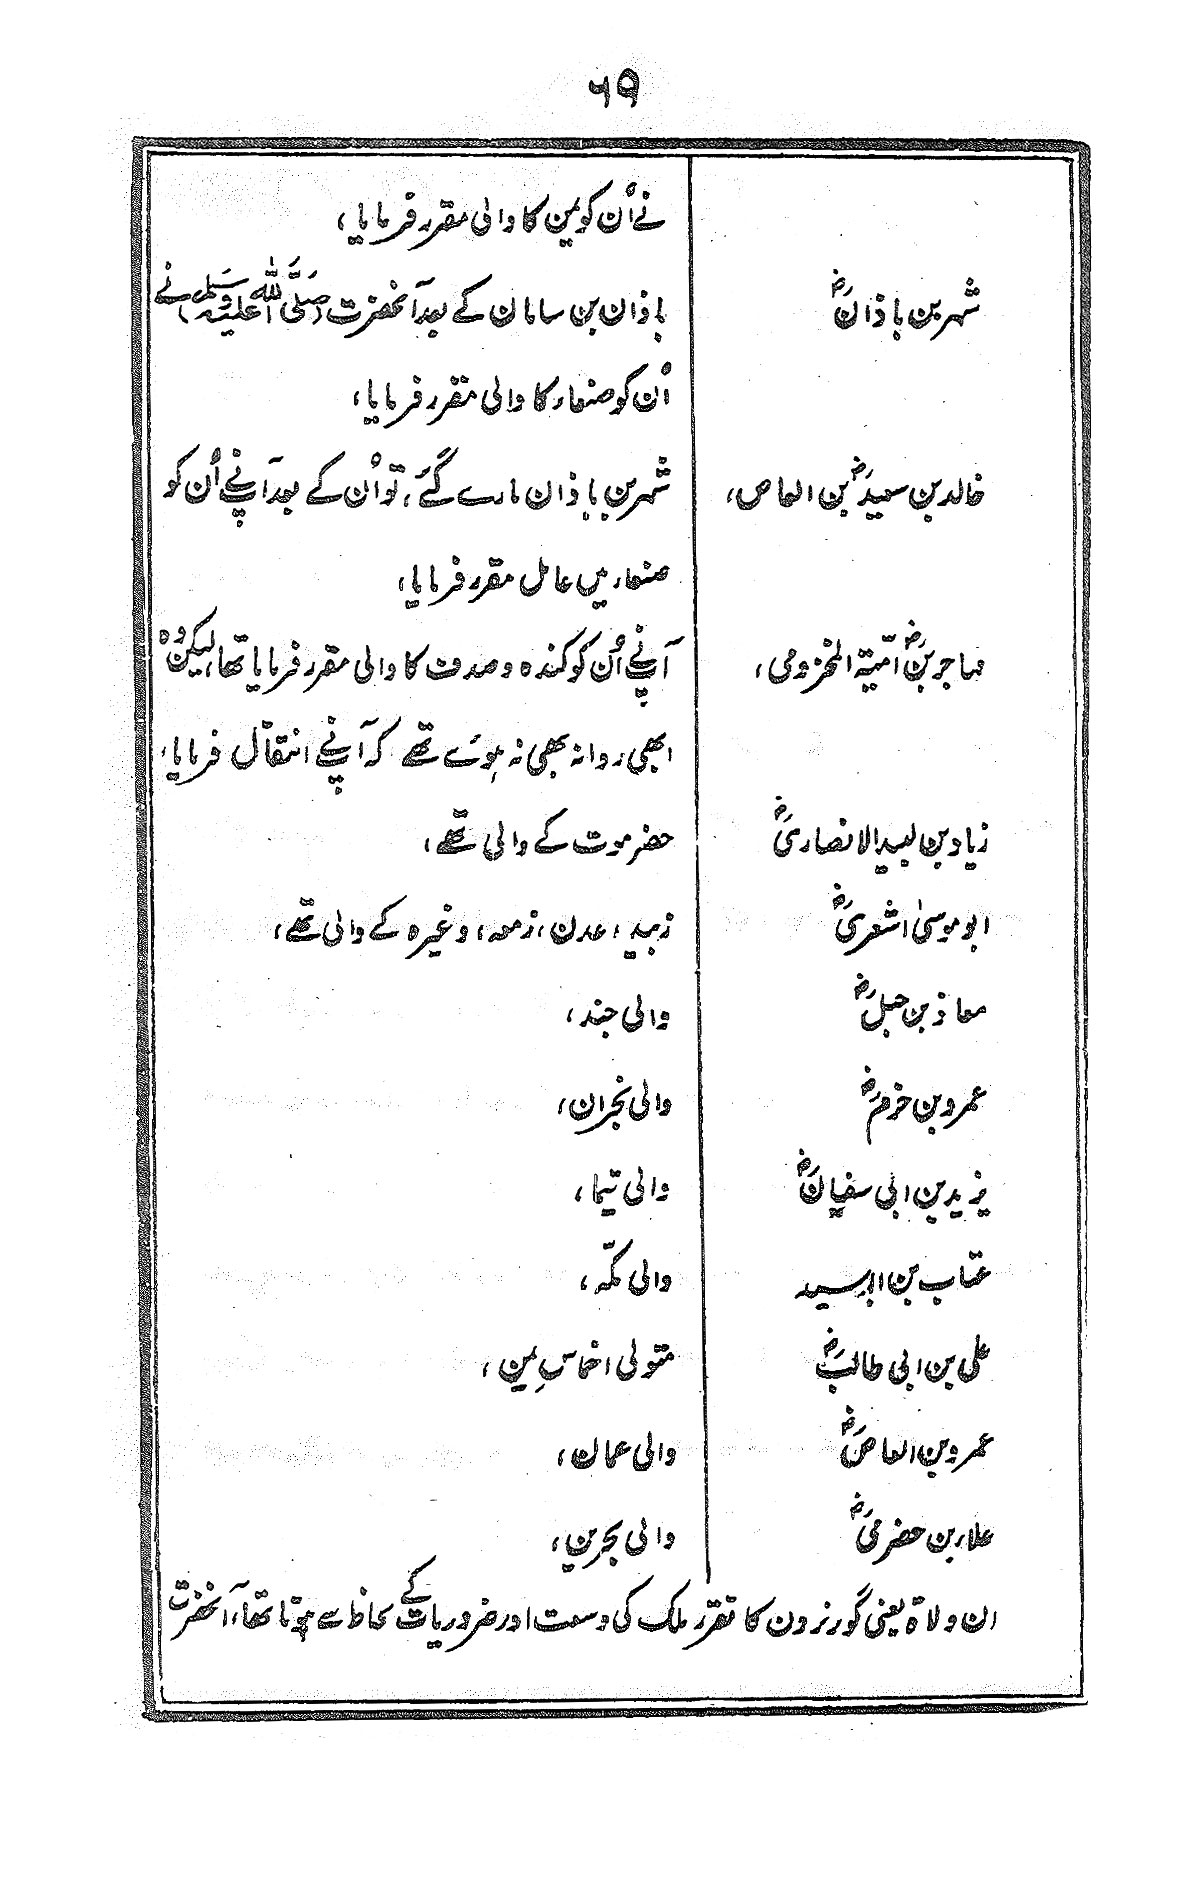 ۶۹
نے اُن کو یمن کا والی مقرر فرمایا،
شہر بن باذانؓ باذان بن سامان کے بعد آنحضرت (صلی اللہ علیہ وسلم) نے
اُن کو صنعاء کا والی مقرر فرمایا،
خالد بن سعیدؓ بن العاص، شہر بن باذان مارے گئے، تو اُن کے بعد آپنے اُن کو
صنعاء میں عامل مقرر فرمایا،
مہاجر بنؓ امّیۃ المخزومی، آپنے اُن کو کندہ و صدف کا والی مقرر فرمایا تھا، لیکن وُہ
ابھی روانہ بھی نہ ہوئے تھے کہ آپنے انتقال فرمایا،
زیاد بن لبید الانصاریؓ حضرموت کے والی تھے،
ابو موسیٰ اشعریؓ زبید، عدن، زمعہ، وغیرہ کے والی تھے،
معاذ بن جبلؓ والی جند،
عمرو بن حزمؓ والی نجران،
یزید بن ابی سفیانؓ والی تیما،
عتاب بن اسید والی مکّہ،
علی بن ابی طالبؓ متولی اخماسِ یمن،
عمرو بن العاصؓ والی عمان،
علاء بن حضرمیؓ والی بحرین،
ان ولاۃ یعنی گورنرون کا تقرر ملک کی وسعت اور ضروریات کے لحاظ سے ہوتا تھا، آنحضرت